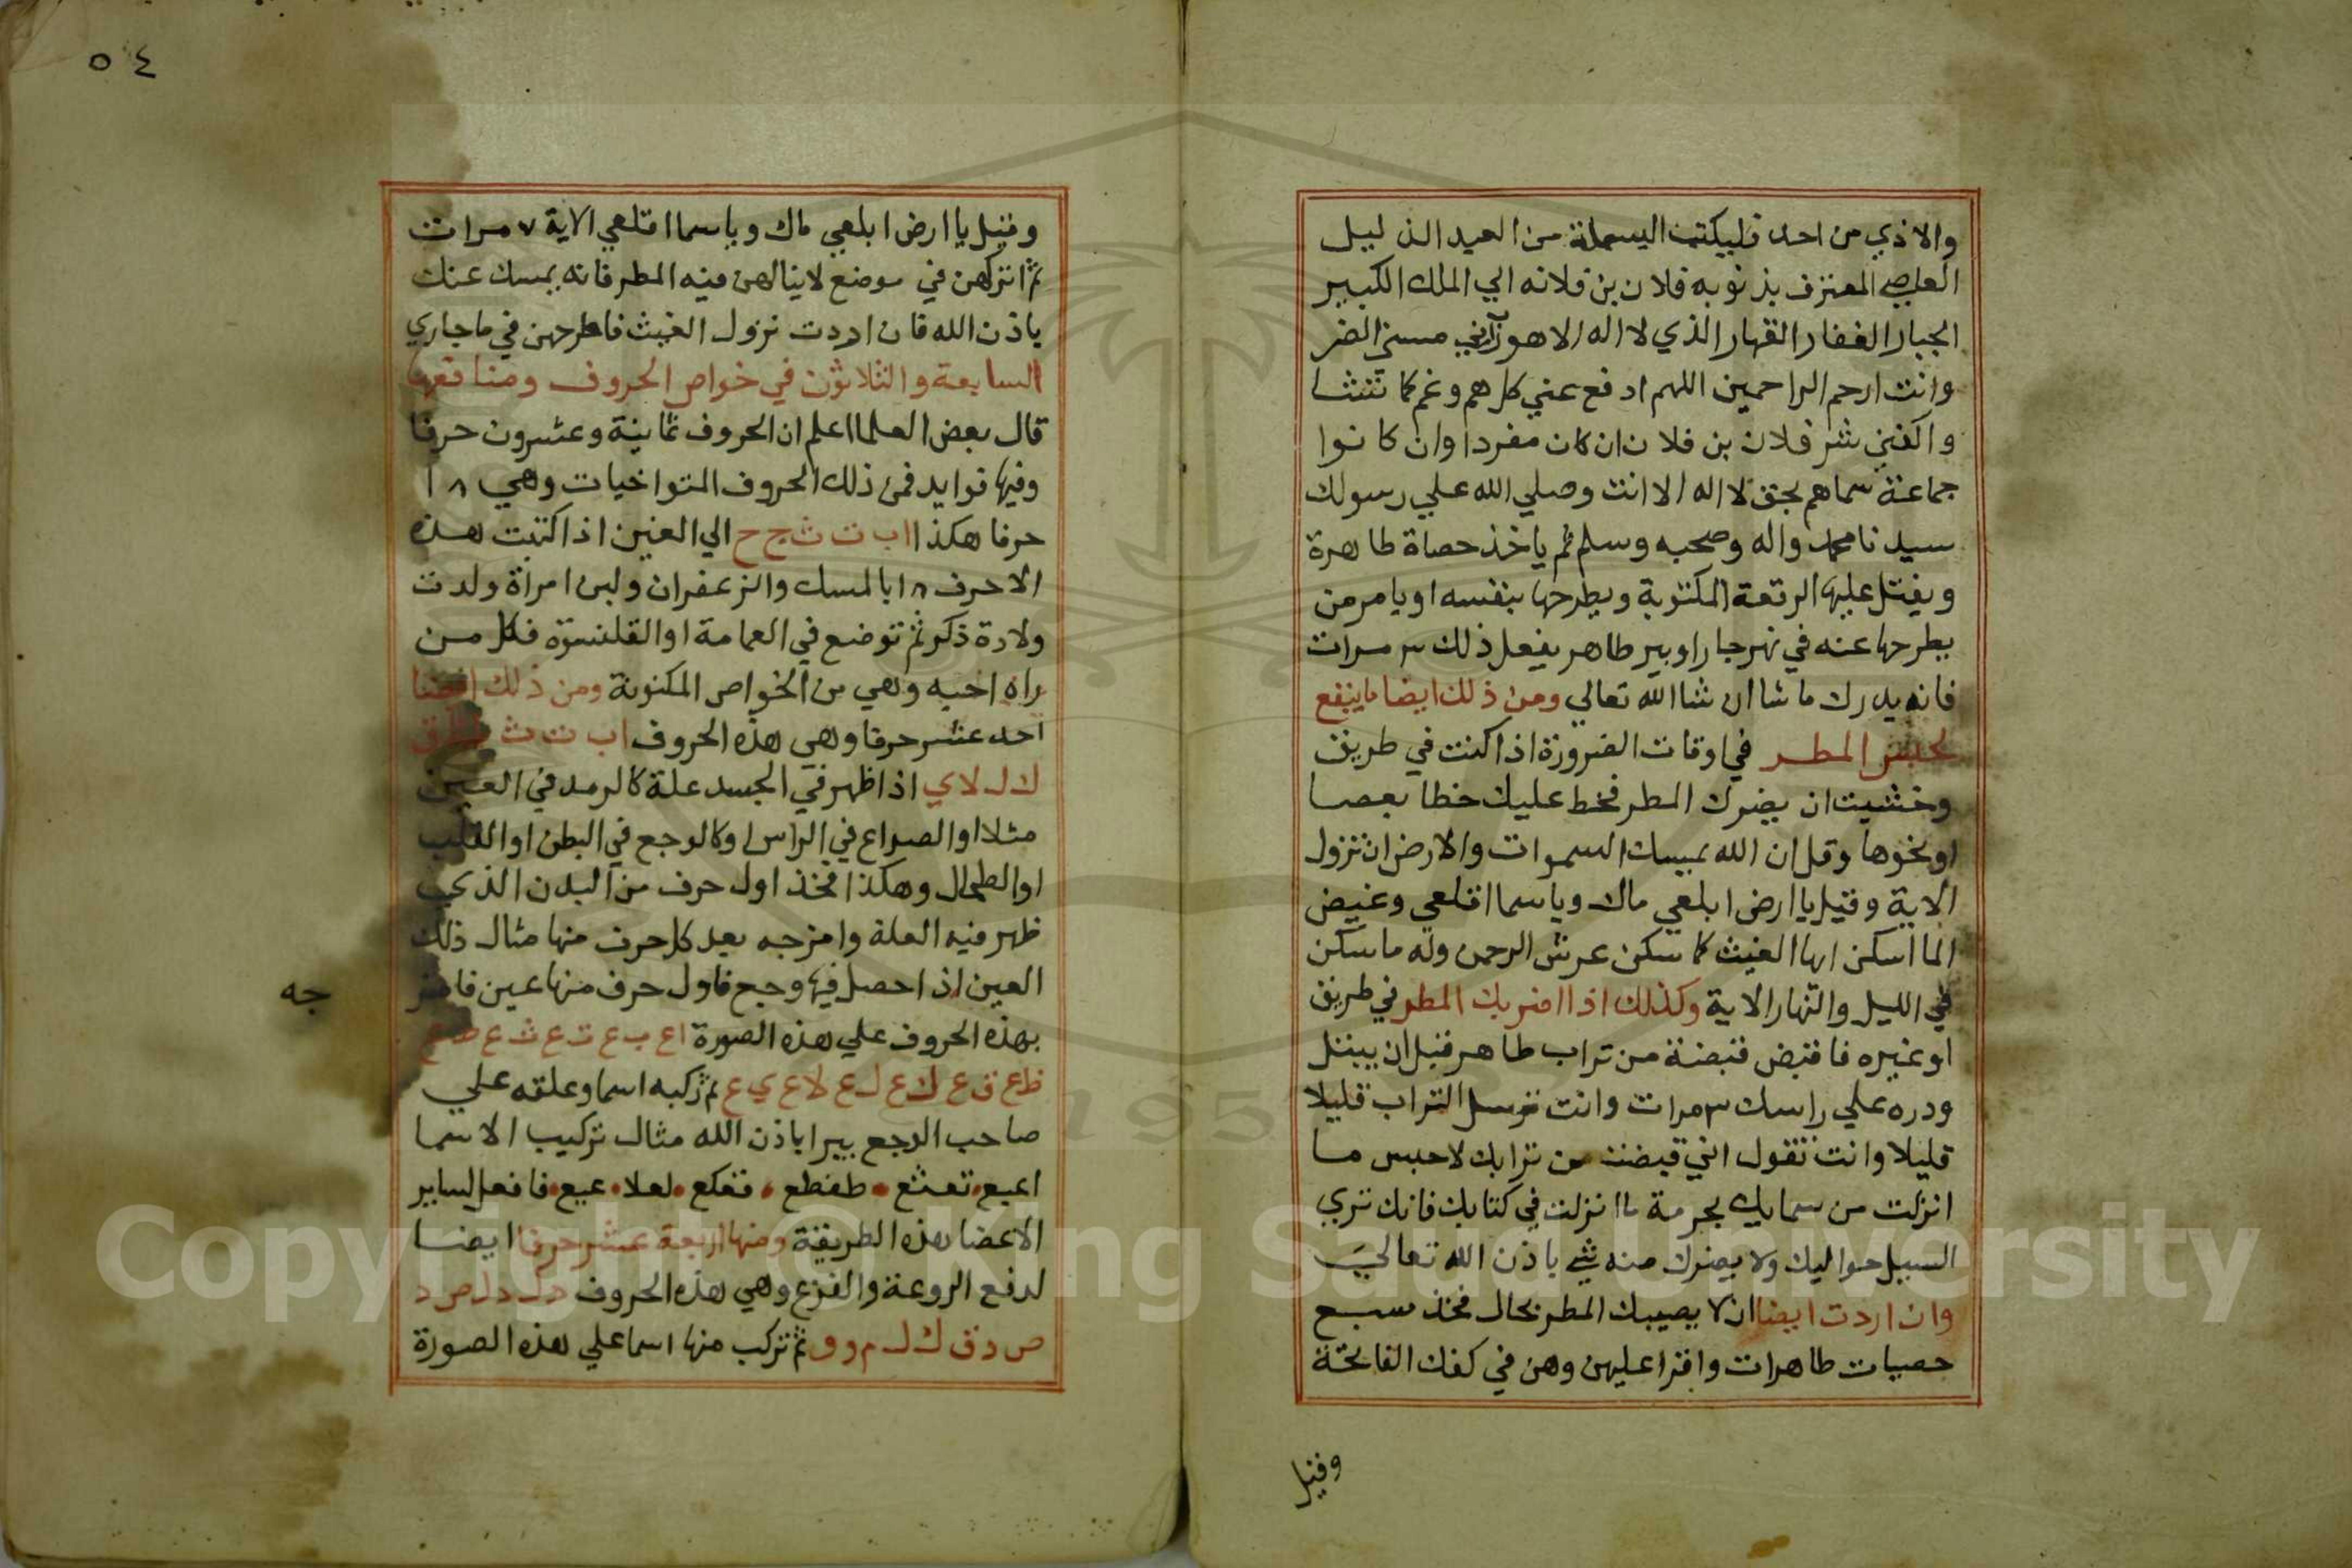 والاذي من احد فليكتب البسملة من العبد الذليل
العاصي المعترف بذنوبه فلان بن فلانه الي الملك الكبير
الجبار الغفار القهار الذي لا اله الا هو رب اني مسني الضر
وانت ارحم الراحمين اللهم ادفع عني كل هم وغم كما تشا
واكفني شر فلان بن فلان ان كان مفردا وان كانوا
جماعة سماهم بحق لا اله الا انت وصلي الله علي رسولك
سيدنا محمد واله وصحبه وسلم ثم ياخذ حصاة طاهرة
ويفتل عليها الرقعة المكتوبة ويطرحها بنفسه او يامر من
يطرحها عنه في نهر جار او بير طاهر يفعل ذلك ٣ مرات
فانه يدرك ما شا ان شا الله تعالي ومن ذلك ايضا ما ينفع
لحبس المطر في اوقات الضرورة اذا كنت في طريق
وخشيت ان يضرك المطر فخط عليك خطا بعصا
او نحوها وقل ان الله يمسك السموات والارض ان تزول
الاية وقيل يا ارض ابلعي ماك ويا سما اقلعي وغيض
الما اسكن ايها الغيث كما سكن عرش الرحمن وله ما سكن
في الليل والنهار الاية وكذلك اذا اضر بك المطر في طريق
او غيره فاقبض قبضة من تراب طاهر قبل ان يبتل
ودره علي راسك ٣ مرات وانت ترسل التراب قليلا
قليلا وانت تقول اني قبضت من ترابك لاحبس ما
انزلت من سمايك بحرمة ما انزلت في كتابك فانك تري
السيل حواليك ولا يضرك منه شي باذن الله تعالي
وان اردت ايضا ان لا يصيبك المطر بحال فخذ سبع
حصيات طاهرات واقرا عليهن وهن في كفك الفاتحة
وقيل
٥٤
وقيل يا ارض ابلعي ماك ويا سما اقلعي الاية ٧ مرات
ثم اتركهن في موضع لا ينالهن فيه المطر فانه يمسك عنك
باذن الله فان اردت نزول الغيث فاطرحهن في ما جاري
السابعة والثلاثون في خواص الحروف ومنافعها
قال بعض العلما اعلم ان الحروف ثمانية وعشرون حرفا
وفيها فوايد فمن ذلك الحروف المتواخيات وهي ١٨
حرفا هكذا ا ب ت ث ج ح الي الغين اذا كتبت هذه
الاحرف ١٨ بالمسك والزعفران ولبن امراة ولدت
ولادة ذكر ثم توضع في العمامة او القلنسوة فكل من
راه احبه وهي من الخواص المكنونة ومن ذلك ايضا
احد عشر حرفا وهي هذه الحروف ا ب ت ث
ك ل لا ي اذا ظهر في الجسد علة كالرمد في العين
مثلا او الصداع في الراس او كالوجع في البطن او القلب
او الطحال وهكذا فخذ اول حرف من البدن الذي
ظهر فيه العلة وامزجه بعد كل حرف منها مثال ذلك
العين اذا حصل فيها وجع فاول حرف منها عين فامز
جه
بهذه الحروف علي هذه الصورة ا ع ب ع ت ع ث ع ط ع
ظ ع ق ع ك ع ل ع لا ع ي ع ثم ركبه اسما وعلقه علي
صاحب الوجع يبرا باذن الله مثال تركيب الاسما
اعبع تعثع طعظع قعكع لعلا عيع فافعل لساير
الاعضا بهذه الطريقة ومنها اربعة عشر حرفا ايضا
لدفع الروعة والفزع وهي هذه الحروف
ص د ق ك ل م و و ثم تركب منها اسما علي هذه الصورة
Copyright © King Saud University
195